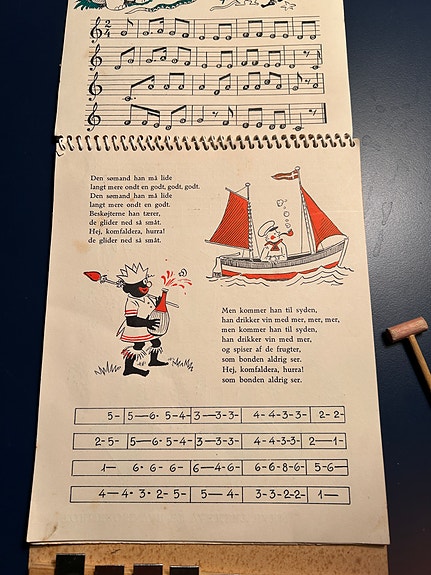 2
4
Den sømand han må lide
langt mere ondt en godt, godt, godt.
Den sømand han må lide
langt mere ondt en godt.
Beskøjterne han tærer,
de glider ned så småt.
Hej, komfaldera, hurra!
de glider ned så småt.
Men kommer han til syden,
han drikker vin med mer, mer, mer,
men kommer han til syden,
han drikker vin med mer,
og spiser af de frugter,
som bonden aldrig ser.
Hej, komfaldera, hurra!
som bonden aldrig ser.
5- | 5—6· 5-4- | 3—3-3- | 4-4-3-3- | 2-2-
2-5- | 5—6· 5-4- | 3—3-3- | 4-4-3-3- | 2—1-
1— | 6·6-6-6- | 6—4-6- | 6-6-8-6- | 5-6—
4—4·3·2-5- | 5—4- | 3-3-2-2- | 1—